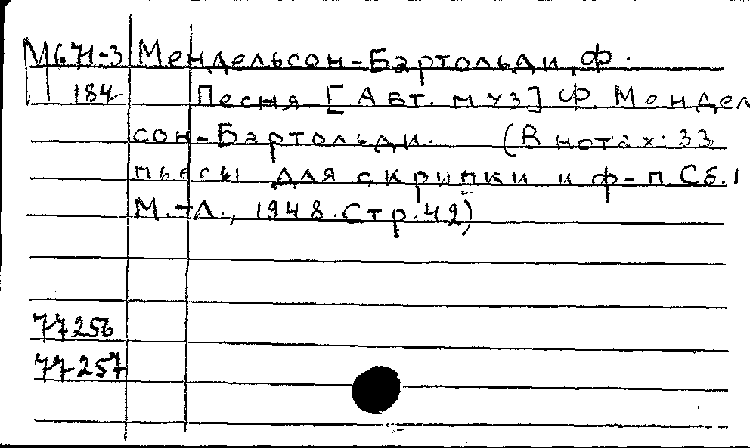 М671-3 Мендельсон-Бартольди, Ф.
184 Песня [Авт. муз] Ф. Мендель
сон-Бартольди. (В нотах: 33
пьесы для скрипки и ф-п. Сб. 1
М.-Л., 1948. Стр. 42)
77256
77257